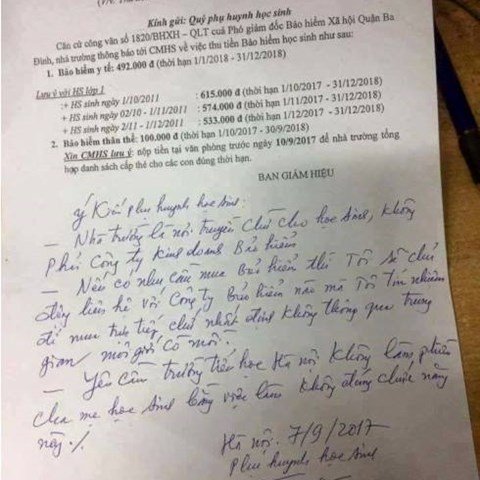 Kính gửi: Quý phụ huynh học sinh
Căn cứ công văn số 1820/BHXH – QLT của Phó giám đốc Bảo hiểm Xã hội Quận Ba
Đình, nhà trường thông báo tới CMHS về việc thu tiền Bảo hiểm học sinh như sau:
1. Bảo hiểm y tế: 492.000 đ (thời hạn 1/1/2018 - 31/12/2018)
Lưu ý với HS lớp 1
:+ HS sinh ngày 1/10/2011 : 615.000 đ (thời hạn 1/10/2017 - 31/12/2018)
:+ HS sinh ngày 02/10 - 1/11/2011 : 574.000 đ (thời hạn 1/11/2017 - 31/12/2018)
:+ HS sinh ngày 2/11 - 1/12/2011 : 533.000 đ (thời hạn 1/12/2017 - 31/12/2018)
2. Bảo hiểm thân thể: 100.000 đ (thời hạn 1/10/2017 - 30/9/2018)
Xin CMHS lưu ý: nộp tiền tại văn phòng trước ngày 10/9/2017 để nhà trường tổng
hợp danh sách cấp thẻ cho các con đúng thời hạn.
BAN GIÁM HIỆU
Ý Kiến phụ huynh học sinh:
– Nhà trường là nơi truyền chữ cho học sinh, không
phải Công ty kinh doanh Bảo hiểm
– Nếu có nhu cầu mua Bảo hiểm thì Tôi sẽ chủ
động liên hệ với Công ty Bảo hiểm nào mà Tôi Tín nhiệm
để mua trực tiếp, chứ nhất định không thông qua trung
gian môi giới cò mồi.
– Yêu cầu trường tiểu học Hà nội không làm phiền
cha mẹ học sinh bằng việc làm không đúng chức năng
này ./.
Hà nội. 7/9/2017
Phụ huynh học sinh